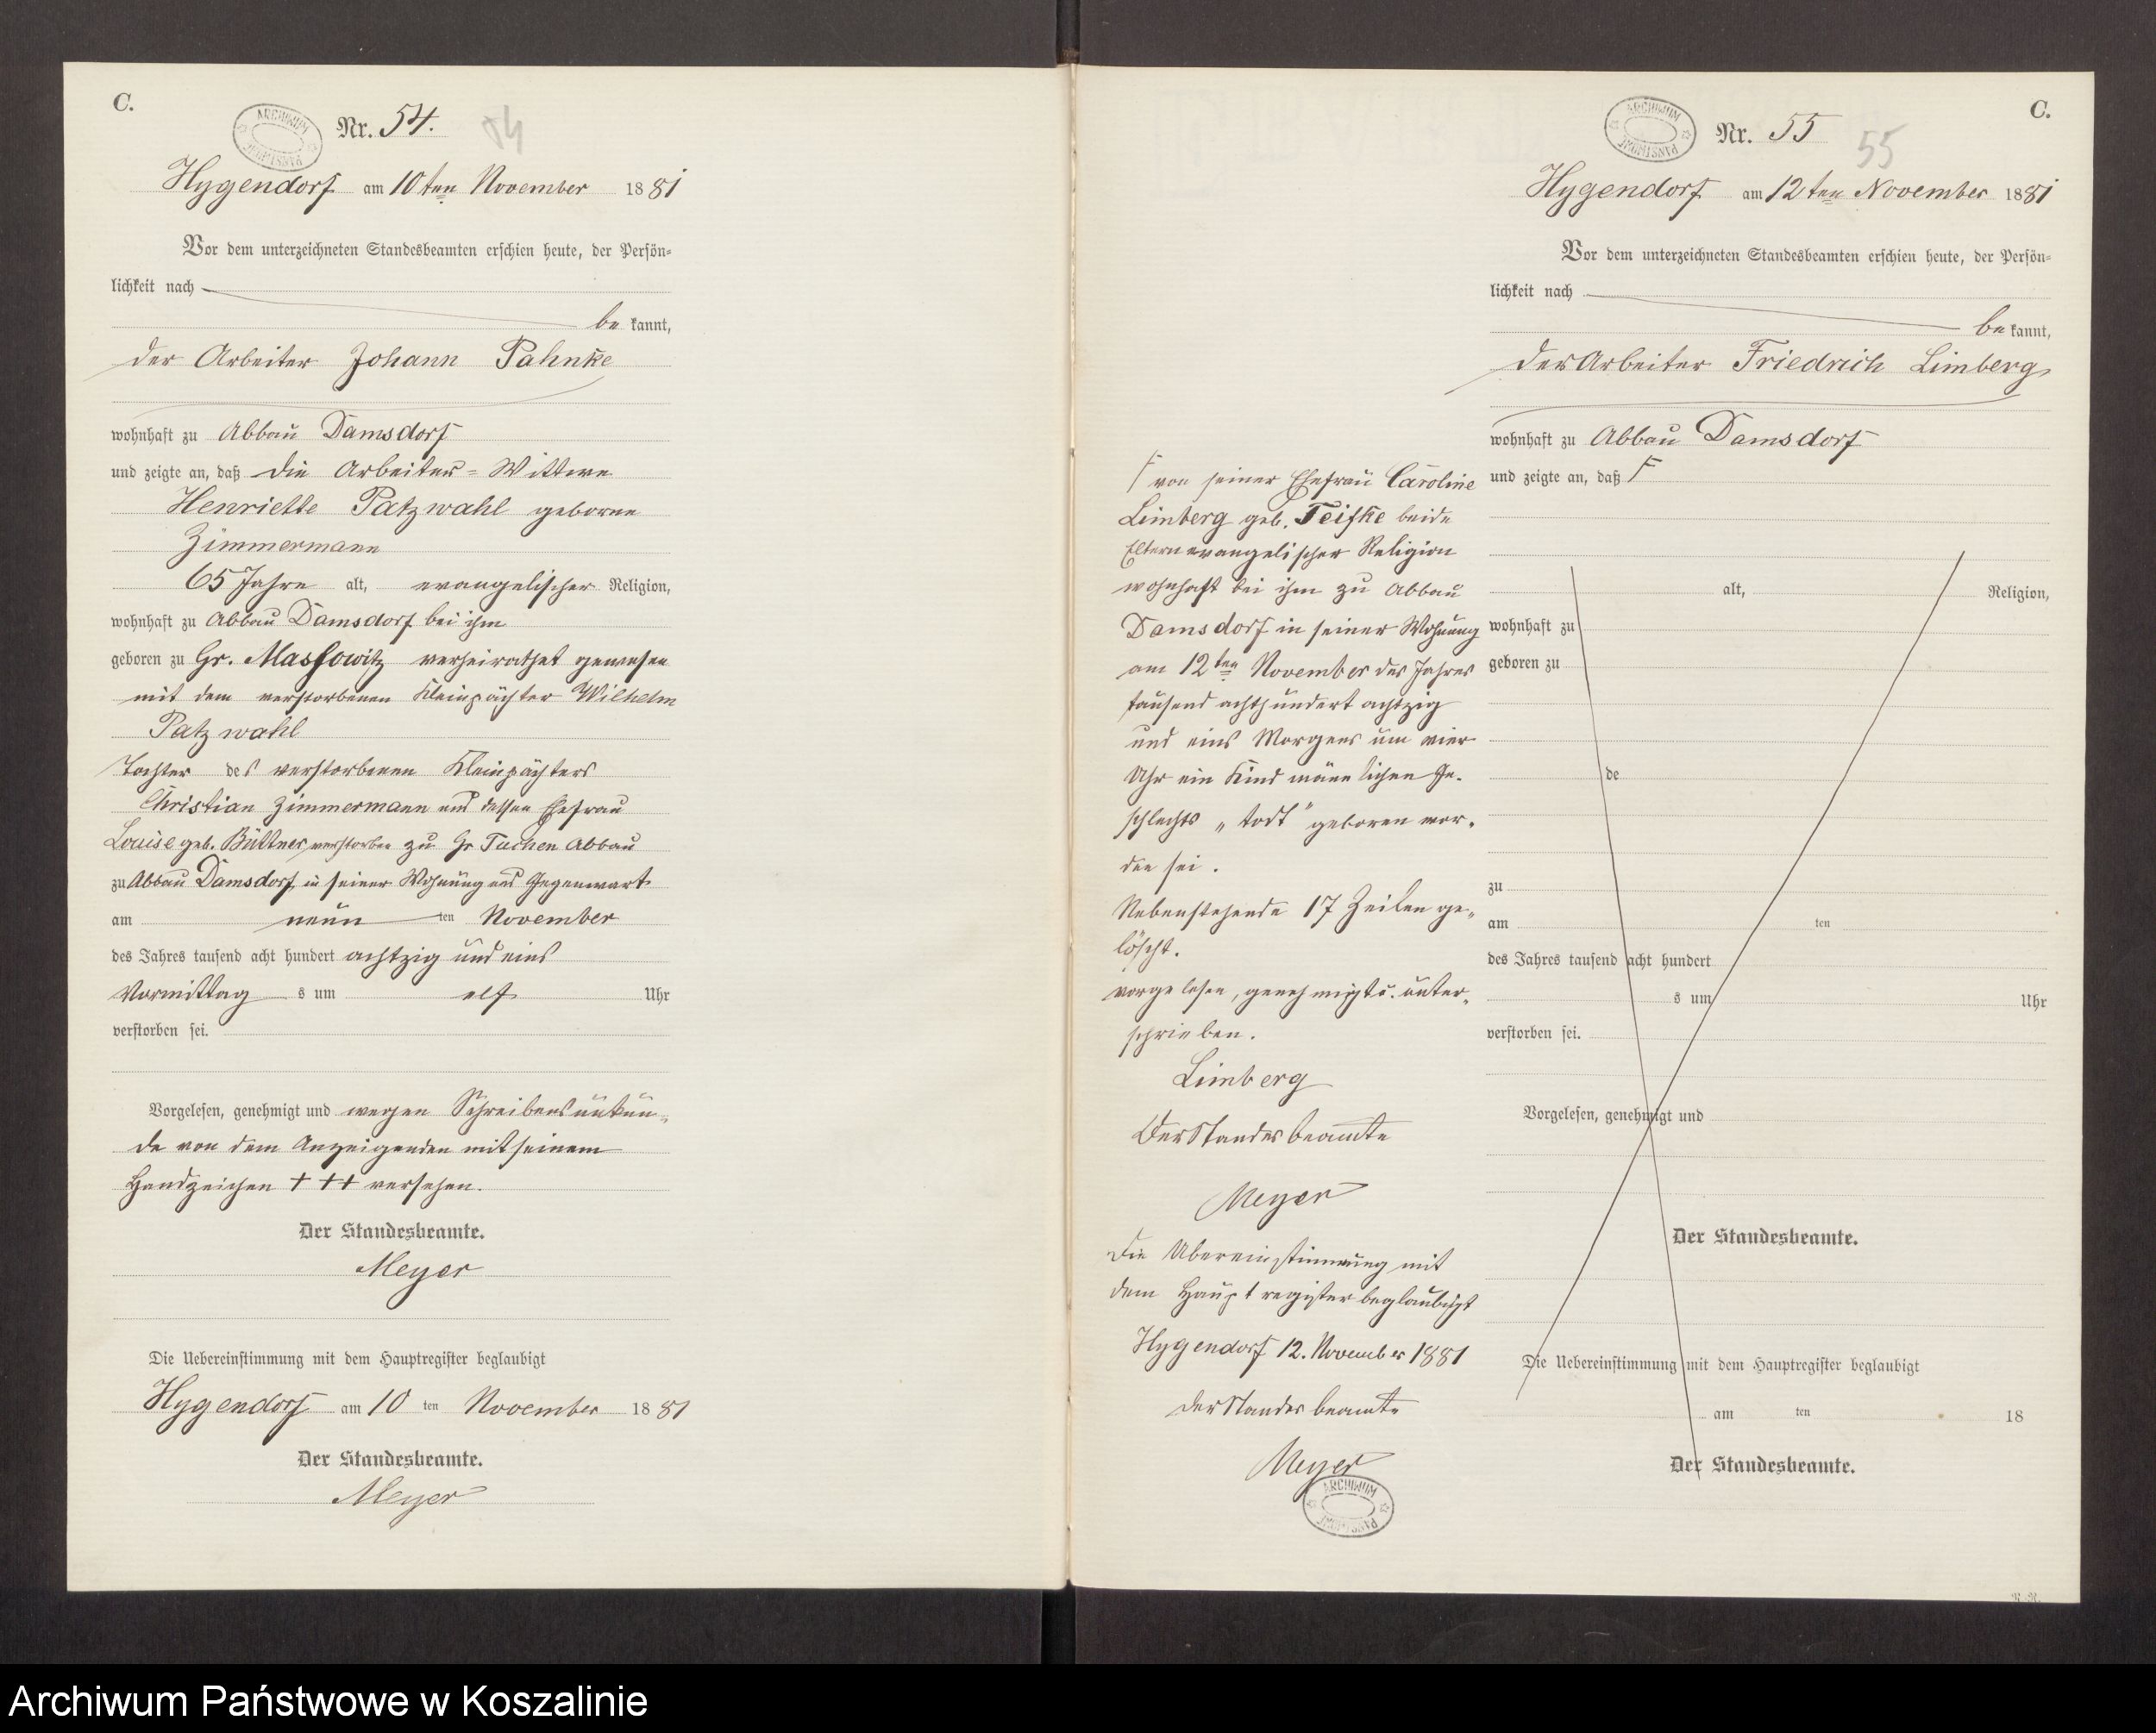 C.
Nr. 54.
54
Hygendorf am 10ten November 1881
Vor dem unterzeichneten Standesbeamten erschien heute, der Persön=
lichkeit nach
be kannt,
der Arbeiter Johann Pahnke
wohnhaft zu Abbau Damsdorf
und zeigte an, daß die Arbeiter=Wittwe
Henriette Patzwahl geborne
Zimmermann
65 Jahre alt, evangelischer Religion,
wohnhaft zu Abbau Damsdorf bei ihm
geboren zu Gr. Massowitz verheirathet gewesen
mit dem verstorbenen Kleinpächter Wilhelm
Patzwahl
Tochter des verstorbenen Kleinpächters
Christian Zimmermann und dessen Ehefrau
Louise geb. Büttner verstorben zu Gr Tuchen Abbau
zu Abbau Damsdorf in seiner Wohnung und Gegenwart
am neun ten November
des Jahres tausend acht hundert achtzig und eins
Vormittag s um elf Uhr
verstorben sei.
Vorgelesen, genehmigt und wegen Schreibensunkun=
de von dem Anzeigenden mit seinem
Handzeichen +++ versehen.
Der Standesbeamte.
Meyer
Die Uebereinstimmung mit dem Hauptregister beglaubigt
Hygendorf am 10 ten November 1881
Der Standesbeamte.
Meyer
C.
Nr. 55
55
Hygendorf am 12ten November 1881
Vor dem unterzeichneten Standesbeamten erschien heute, der Persön=
lichkeit nach
be kannt,
der Arbeiter Friedrich Limberg
wohnhaft zu Abbau Damsdorf
und zeigte an, daß F
F von seiner Ehefrau Caroline
Limberg geb. Teifke beide
Eltern evangelischer Religion
wohnhaft bei ihm zu Abbau
Damsdorf in seiner Wohnung
am 12ten November des Jahres
tausend achthundert achtzig
und eins Morgens um vier
Uhr ein Kind männlichen Ge-
schlechts „todt" geboren wor-
den sei.
Nebenstehende 17 Zeilen ge-
löscht.
vorgelesen, genehmigt u. unter-
schrieben.
Limberg
Der Standesbeamte
Meyer
Die Übereinstimmung mit
dem Hauptregister beglaubigt
Hygendorf 12. November 1881
Der Standesbeamte
Meyer
alt, Religion,
wohnhaft zu
geboren zu
de
zu
am ten
des Jahres tausend acht hundert
s um Uhr
verstorben sei.
Vorgelesen, genehmigt und
Der Standesbeamte.
Die Uebereinstimmung mit dem Hauptregister beglaubigt
am ten 18
Der Standesbeamte.
ARCHIWUM PAŃSTWOWE
Archiwum Państwowe w Koszalinie